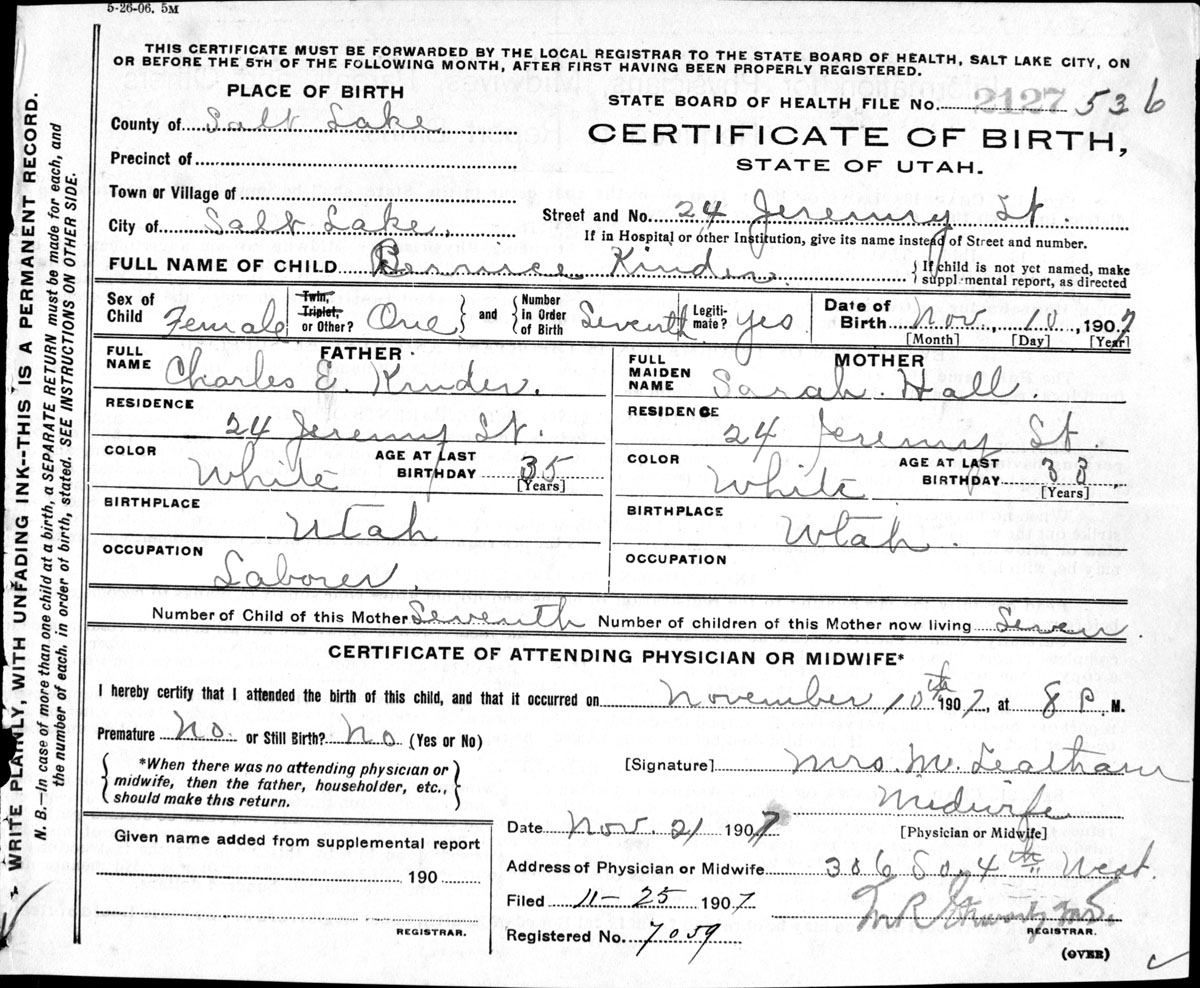 5-26-06. 5M
THIS CERTIFICATE MUST BE FORWARDED BY THE LOCAL REGISTRAR TO THE STATE BOARD OF HEALTH, SALT LAKE CITY, ON
OR BEFORE THE 5TH OF THE FOLLOWING MONTH, AFTER FIRST HAVING BEEN PROPERLY REGISTERED.
PLACE OF BIRTH
STATE BOARD OF HEALTH FILE No. 2127 536
County of Salt Lake
CERTIFICATE OF BIRTH,
Precinct of
STATE OF UTAH.
Town or Village of
City of Salt Lake.
Street and No. 24 Jeremy St
If in Hospital or other Institution, give its name instead of Street and number.
FULL NAME OF CHILD Bernice Kinder. { If child is not yet named, make
supplemental report, as directed
Sex of Child Female Twin, Triplet, or Other? One } and { Number in Order of Birth Seventh Legiti-mate? Yes Date of Birth Nov., 10, 1907
[Month] [Day] [Year]
FULL NAME FATHER Charles E. Kinder.
FULL MAIDEN NAME MOTHER Sarah Hall.
RESIDENCE 24 Jeremy St.
RESIDENCE 24 Jeremy St.
COLOR White AGE AT LAST BIRTHDAY 35 [Years]
COLOR White AGE AT LAST BIRTHDAY 33 [Years]
BIRTHPLACE Utah
BIRTHPLACE Utah.
OCCUPATION Laborer.
OCCUPATION
Number of Child of this Mother Seventh Number of children of this Mother now living Seven.
CERTIFICATE OF ATTENDING PHYSICIAN OR MIDWIFE*
I hereby certify that I attended the birth of this child, and that it occurred on November 10th 1907, at 8 P. M.
Premature No. or Still Birth? No (Yes or No)
{ *When there was no attending physician or
midwife, then the father, householder, etc.,
should make this return. }
[Signature] Mrs M.
Midwife
[Physician or Midwife]
Date Nov. 21 1907
Given name added from supplemental report
190
REGISTRAR.
Address of Physician or Midwife 306 So. 4th West.
Filed 11-25 1907
REGISTRAR.
Registered No. 7059
(OVER)
WRITE PLAINLY, WITH UNFADING INK--THIS IS A PERMANENT RECORD.
N. B.—In case of more than one child at a birth, a SEPARATE RETURN must be made for each, and
the number of each. in order of birth, stated. SEE INSTRUCTIONS ON OTHER SIDE.